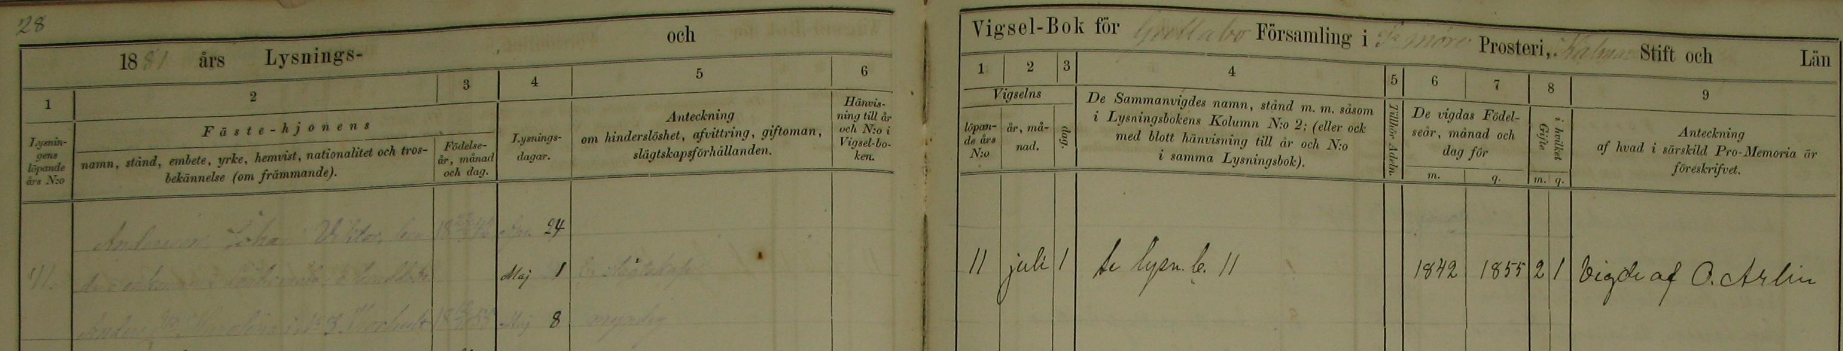 28
1881 års Lysnings- och
1 2 3 4 5 6
Lysnin-
gens
löpande
års N:o
Fäste-hjonens
namn, stånd, embete, yrke, hemvist, nationalitet och tros-
bekännelse (om främmande).
Födelse-
år, månad
och dag.
Lysnings-
dagar.
Anteckning
om hinderslöshet, afvittring, giftoman,
slägtskapsförhållanden.
Hänvis-
ning till år
och N:o i
Vigsel-bo-
ken.
24
11. Maj 1
Maj 8
Vigsel-Bok för Församling i Prosteri, Kalmar Stift och Län
1 2 3 4 5 6 7 8 9
Vigselns
löpan-
de års
N:o
år, må-
nad.
dag.
De Sammanvigdes namn, stånd m. m. såsom
i Lysningsbokens Kolumn N:o 2; (eller ock
med blott hänvisning till år och N:o
i samma Lysningsbok).
Tillhör Adeln.
De vigdas Födel-
seår, månad och
dag för
m. q.
i hvilket
Gifte
m. q.
Anteckning
af hvad i särskild Pro-Memoria är
föreskrifvet.
11 juli 1 Se lysn. b. 11 1842 1855 2 1 Vigde af O. Arlin